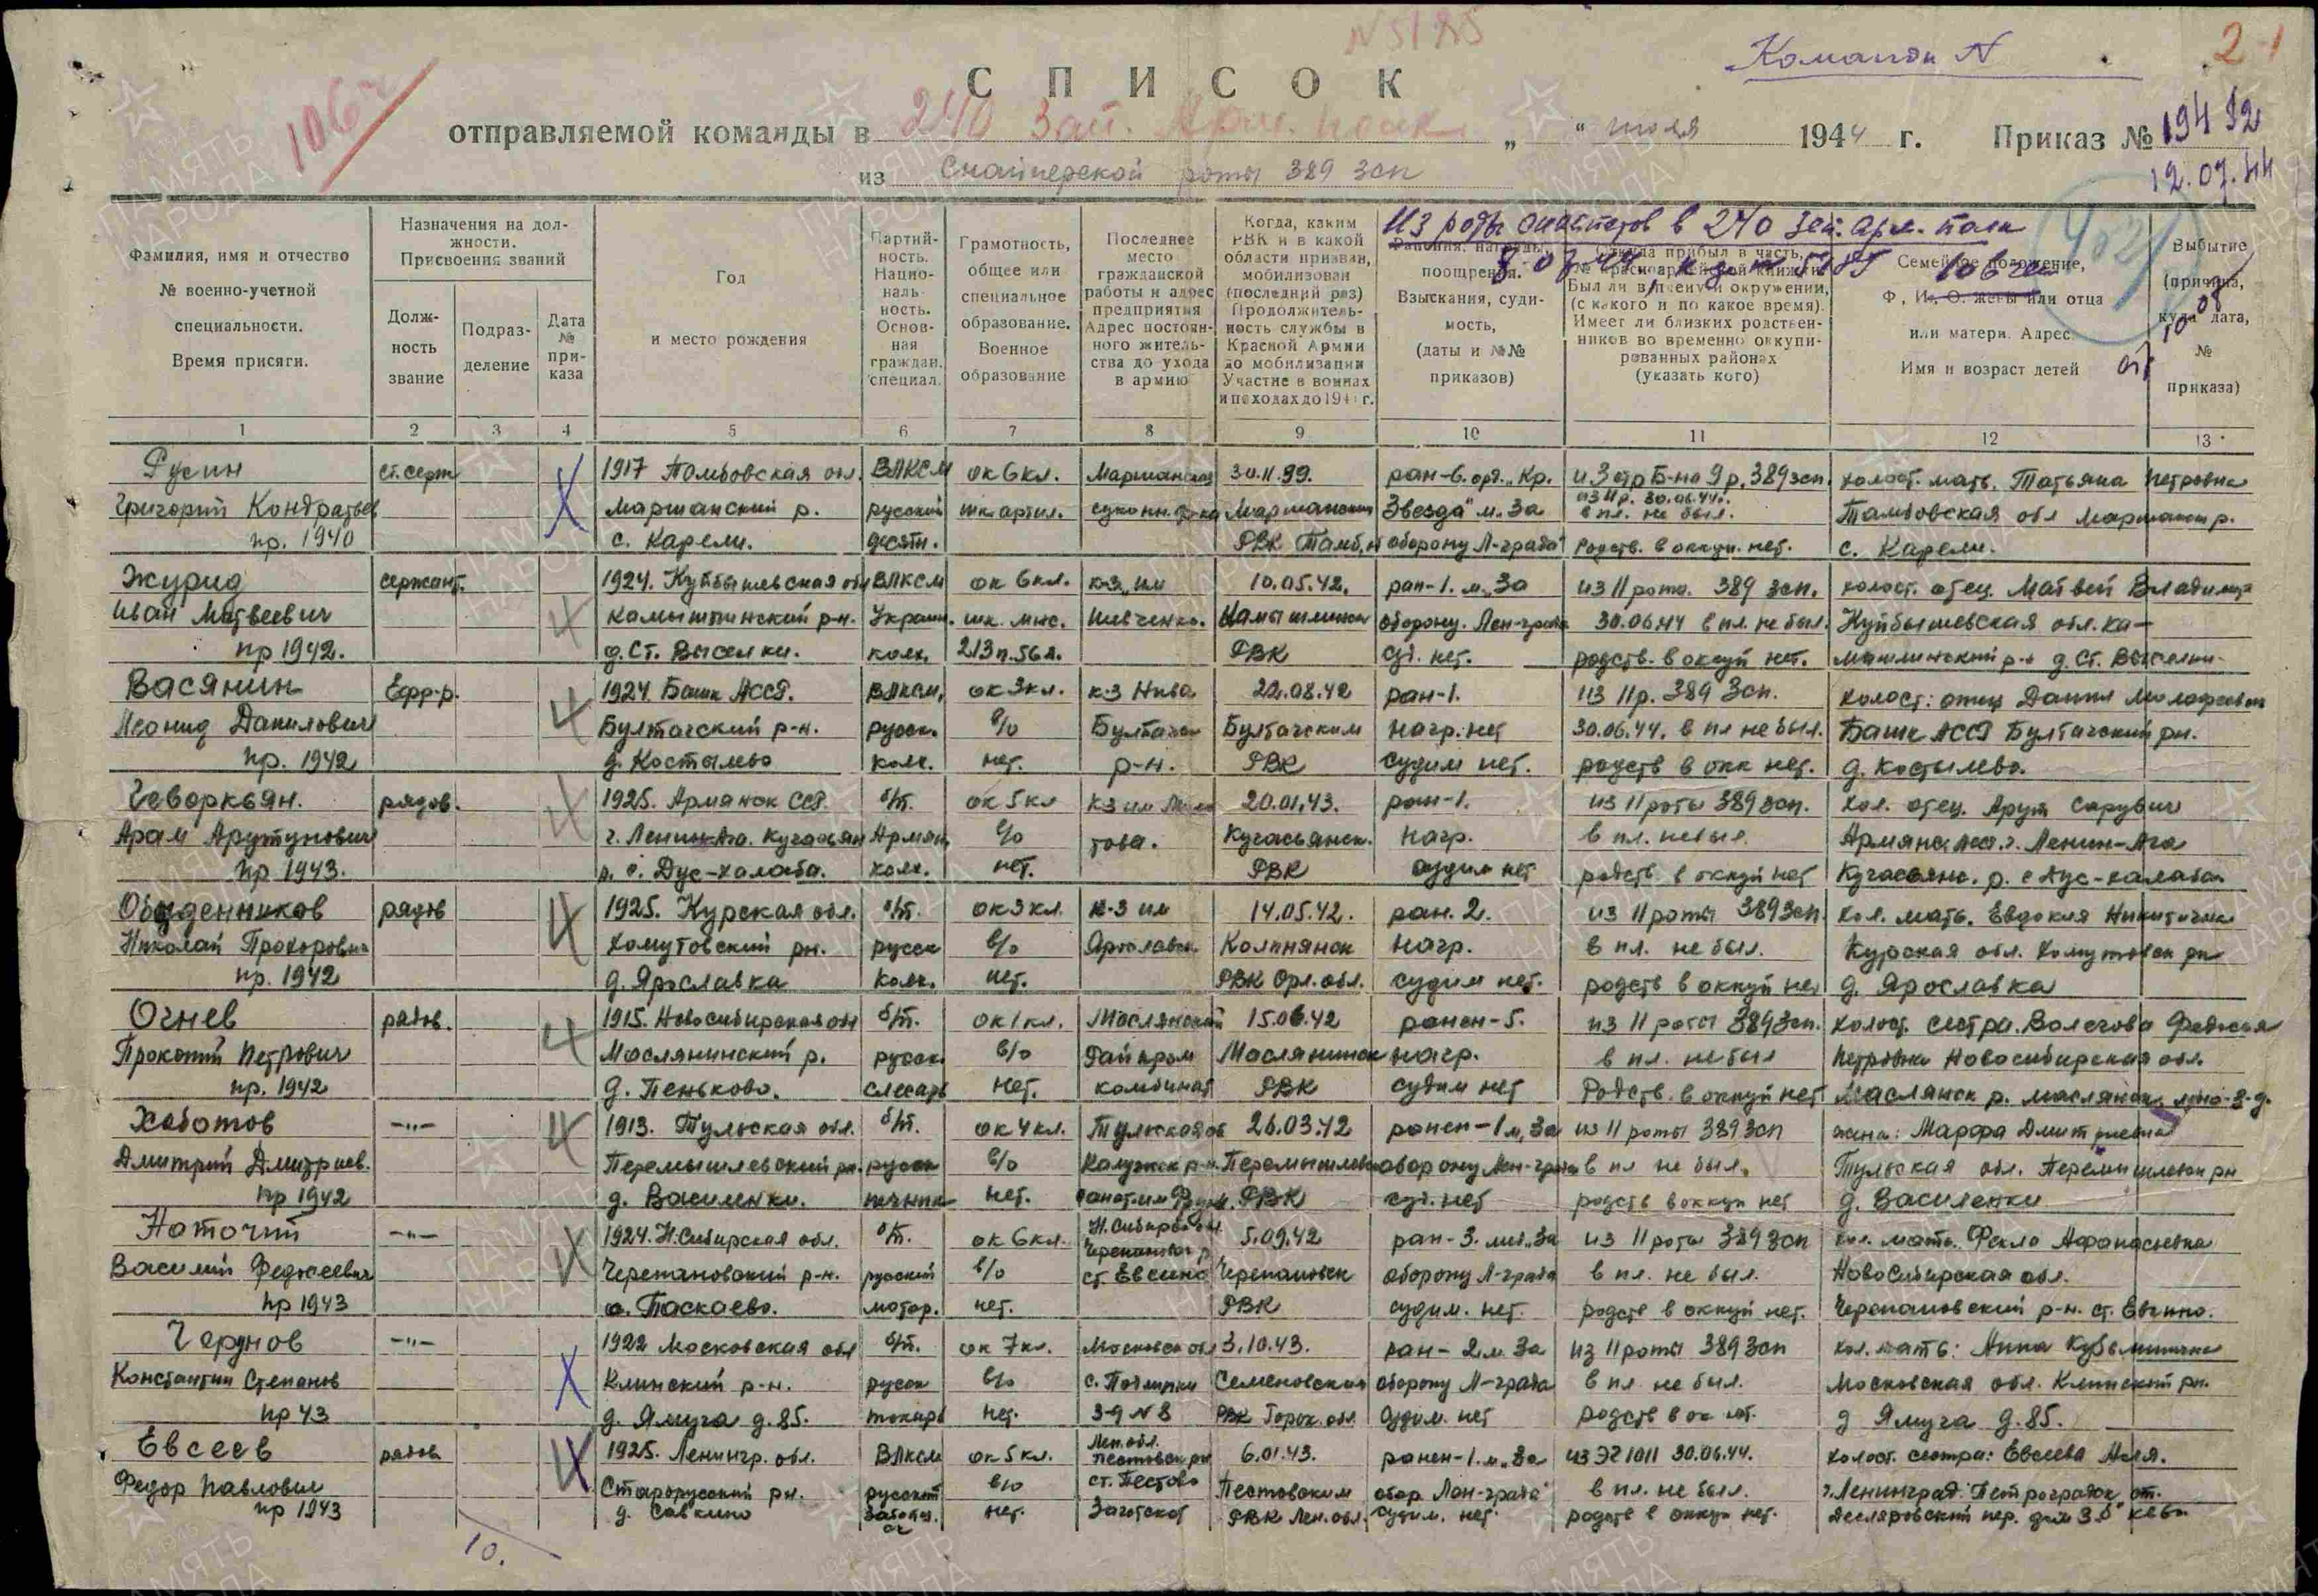 N 5185
Команды N
2-1
106 ч
СПИСОК
отправляемой команды в 240 Зап. Арт. полк „ “ июля 1944 г. Приказ № 194 §2
12.07.44
из Снайперской роты 389 зсп
Из роты снайперов в 240 зап. арт. полк
Фамилия, имя и отчество
№ военно-учетной
специальности.
Время присяги.
Назначения на дол-
жности.
Присвоения званий
Долж-
ность
звание
Подраз-
деление
Дата
№
при-
каза
Год
и место рождения
Партий-
ность.
Нацио-
наль-
ность.
Основ-
ная
граждан.
специал.
Грамотность,
общее или
специальное
образование.
Военное
образование
Последнее
место
гражданской
работы и адрес
предприятия
Адрес постоян-
ного житель-
ства до ухода
в армию
Когда, каким
РВК и в какой
области призван,
мобилизован
(последний раз)
Продолжитель-
ность службы в
Красной Армии
до мобилизации
Участие в воинах
и походах до 194 г.
Ранения, награды,
поощрения.
Взыскания, суди-
мость,
(даты и №№
приказов)
Откуда прибыл в часть,
№ красноармейской книжки
Был ли в плену и окружении,
(с какого и по какое время).
Имеет ли близких родствен-
ников во временно оккупи-
рованных районах
(указать кого)
Семейное положение,
Ф, И, О. жены или отца
или матери. Адрес.
Имя и возраст детей
Выбытие
(причина,
куда дата,
№
приказа)
1 2 3 4 5 6 7 8 9 10 11 12 13
Русин ст. серж 1917 Тамбовская обл. ВЛКСМ ок 6 кл. 30.11.39. ран-6. орд. „Кр. холост. мать. Татьяна Петровна
Григорий Кондратьев Маршанский р. русский шк. артил. Маршанский Звезда" м. За из 11 р. 30.06.44г. Тамбовская обл
в пл. не был.
пр. 1940 с. Карели. десятн. РВК оборону Л-града" родств. в оккуп. нет. с. Карели.
Журид сержант. 1924. Куйбышевская обл ВЛКСМ ок 6 кл. к-з им 10.05.42. ран-1. м. „За из 11 рота. 389 зсп. холост. отец. Матвей
Иван Матвеевич Камышлинский р-н. Украин. шк. мнс. Шевченко. оборону. Лен-града 30.06.44 в пл. не был. Куйбышевская обл. Ка-
пр 1942. д. Ст. Выселки. колх. РВК суд. нет. родств. в оккуп нет. мышлинский р-н д. Ст. Выселки.
Васянин Ефр-р. 1924. Башк АССР. ВЛКСМ, ок 3 кл. к-з Нива 22.08.42 ран-1. из 11 р. 389 Зсп. холост: отец Данил
Леонид Данилович Бултачский р-н. русск. в/о Булчачским нагр. нет 30.06.44. в пл не был. Башк АССР Булчачский рн.
пр. 1942 д. Костылево колх. нет. р-н. РВК судим нет. родств в окк нет. д. Костылево.
Геворкьян. рядов. 1925. Армянск ССР. б/п. ок 5 кл 20.01.43. ран-1. из 11 роты 389 зсп. хол. отец.
Арам Арутунович Армян. в/о това. нагр. в пл. не был.
пр 1943. колх. нет. РВК судим нет родств в оккуп нет
Обыденников рядов 1925. Курская обл. б/п. ок 3 кл. к-з им 14.05.42. ран. 2. из 11 роты 389 зсп. хол. мать. Евдокия Никитична
Николай Прохорович Хомутовский рн. русск в/о Ярославк. Колпнянск нагр. в пл. не был. Курская обл. Хомутовск рн
пр. 1942 д. Ярославка колх. нет. РВК Орл. обл. судим нет. родств в оккуп нет д. Ярославка
Огнев рядов. 1915. Новосибирская обл б/п. ок 1 кл. Маслянский 15.06.42 ранен-5. из 11 роты 389 зсп. холост. сестра.
Прокопий Петрович Маслянинский р. русск в/о Райпром Маслянинск нагр. в пл. не был Петровна Новосибирская обл.
пр. 1942 д. Пеньково. слесарь нет. комбинат РВК судим нет родств. в оккуп нет
Хаботов -"- 1913. Тульская обл. б/п. ок 4 кл. Тульская об 26.03.42 ранен-1 м. „За из 11 роты 389 зсп жена: Марфа Дмитриевна
Дмитрий Дмитриев. Перемышлевский рн. русск в/о Калужск р-н. Перемышлевск оборону Лен-града в пл не был. Тульская обл. Перемышлевск рн
пр 1942 д. Василенки. печник нет. РВК суд. нет родств в оккуп нет д. Василенки
Наточий -"- 1924. Н. Сибирская обл. б/п. ок 6 кл. 5.09.42 ран-3. мед. „За из 11 роты 389 зсп хол. мать. Фекла Афанасьевна
Василий Федосеевич Черепановский р-н. русский в/о ст. Евсино Черепановск оборону Л-града в пл. не был. Новосибирская обл.
пр 1943 с. Паскаево. мотор. нет. РВК судим. нет. родств в оккуп нет. Черепановский р-н. ст. Евсино.
Черунов -"- 1922 Московская обл б/п. ок 7 кл. Московск обл 3.10.43. ран-2. м. За из 11 роты 389 зсп хол. мать: Анна Кузьминична
Константин Степанов Клинский р-н. русск в/о Семеновский оборону Л-града в пл. не был. Московская обл. Клинский рн.
пр 43 д. Ямуга д. 85. токарь нет. з-д N 8 РВК Горьк. обл. судим. нет родств в ок нет. д Ямуга д. 85.
Евсеев рядов 1925. Ленингр. обл. ВЛКСМ ок 5 кл. Лен. обл. 6.01.43. ранен-1. м. „За из ЭГ 1011 30.06.44. холост. сестра: Евсеева
Пестовск рн
Федор Павлович Старорусский рн. русский в/о ст. Пестово Пестовским обор Лен-града" в пл. не был. г. Ленинград
пр 1943 д. Савкино нет. Заготскот РВК Лен. обл. судим. нет. родств в оккуп нет.
10.